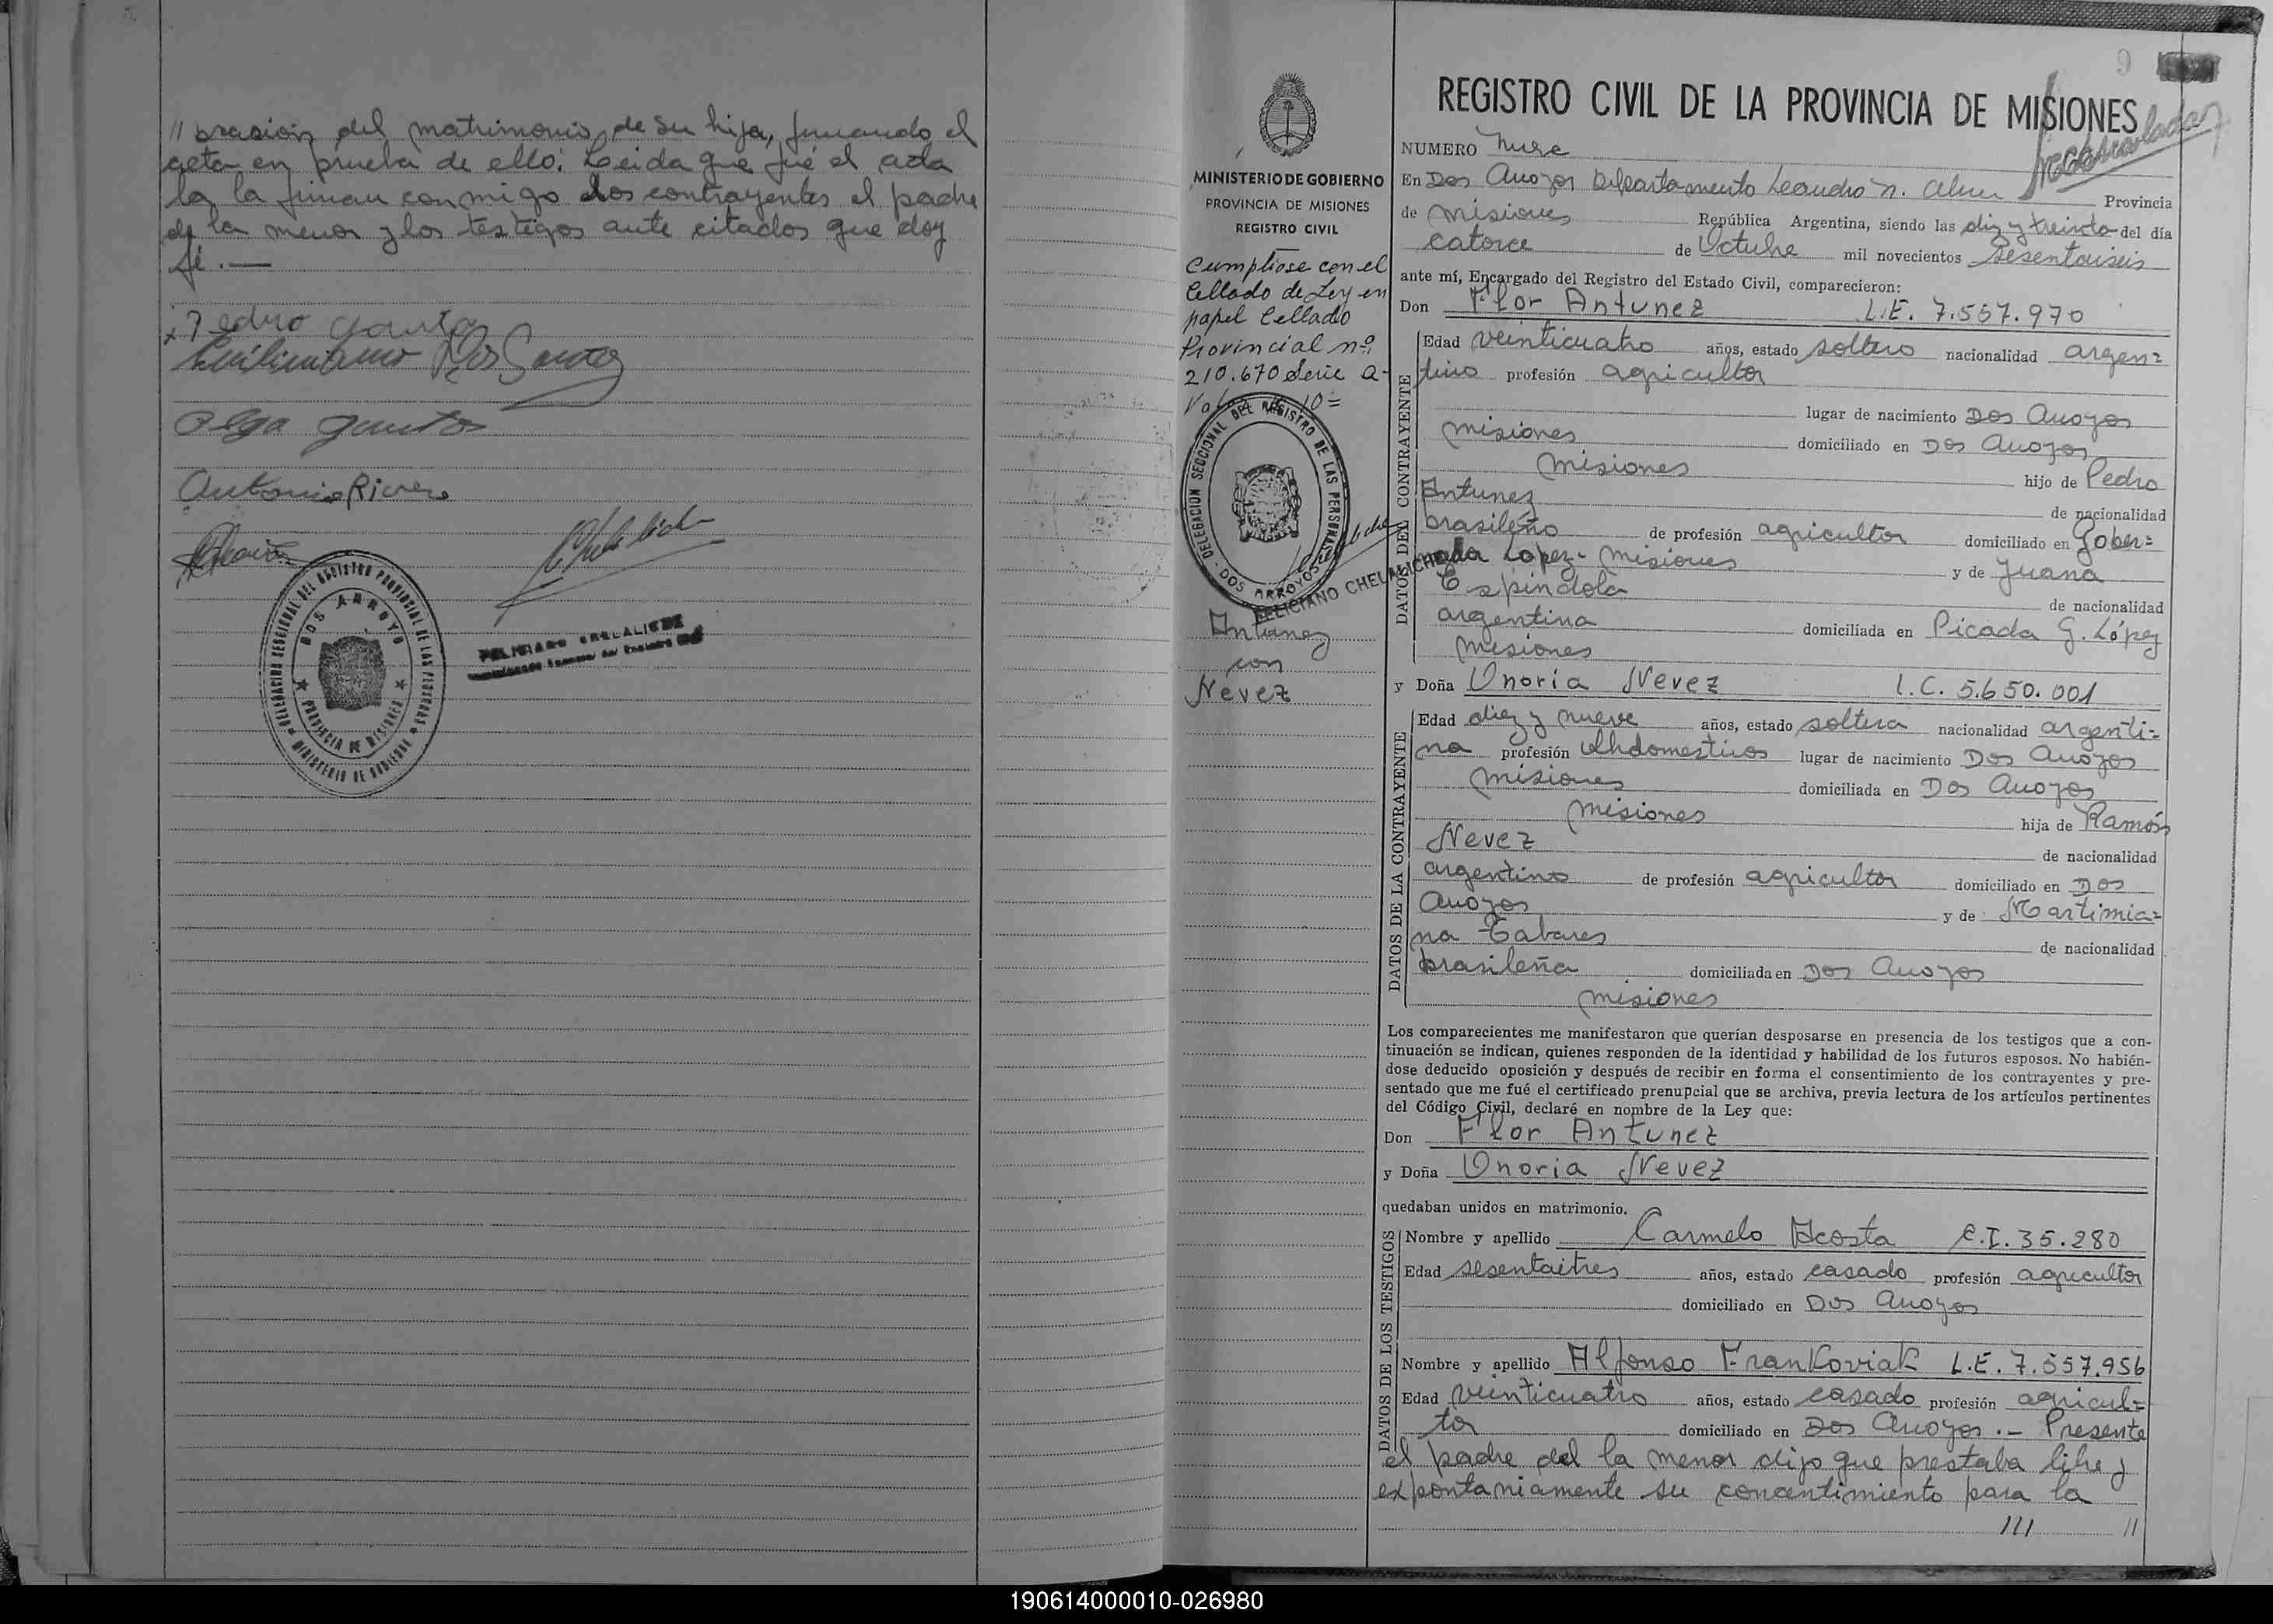 // bración del matrimonio de su hija, firmando el
acta en prueba de ello: Leida que fué el acta
la la firman conmigo los contrayentes el padre
de la menor y los testigos ante citados que doy
fé.—
Pedro
Olga Santos
Antonio Rivero
DELEGACION SECCIONAL DEL REGISTRO PROVINCIAL DE LAS PERSONAS
DOS ARROYO
PROVINCIA DE MISIONES
MINISTERIO DE GOBIERNO
FELICIANO CHELALICHE
MINISTERIO DE GOBIERNO
PROVINCIA DE MISIONES
REGISTRO CIVIL
Cumpliose con el
Cellado de Ley en
papel Cellado
Provincial nº
210.670 Serie A-
10=
DELEGACION SECCIONAL DEL REGISTRO DE LAS PERSONAS
DOS ARROYOS
FELICIANO CHELALICHE
Antunez
con
Nevez
9
REGISTRO CIVIL DE LA PROVINCIA DE MISIONES
NUMERO Nueve
En Dos Arroyos Departamento Leandro N. Alem Provincia
de Misiones República Argentina, siendo las diez y treinta del día
catorce de Octubre mil novecientos sesentaiseis
ante mí, Encargado del Registro del Estado Civil, comparecieron:
Don Flor Antunez L.E. 7.557.970
DATOS DEL CONTRAYENTE
Edad veinticuatro años, estado soltero nacionalidad argen=
tino profesión agricultor
lugar de nacimiento Dos Arroyos
Misiones domiciliado en Dos Arroyos
Misiones hijo de Pedro
Antunez de nacionalidad
brasileño de profesión agricultor domiciliado en Gober=
nador Lopez- Misiones y de Juana
Espindola de nacionalidad
argentina domiciliada en Picada G. López
Misiones
y Doña Onoria Nevez L.C. 5.650.001
DATOS DE LA CONTRAYENTE
Edad diez y nueve años, estado soltera nacionalidad argenti=
na profesión qhdomesticos lugar de nacimiento Dos Arroyos
Misiones domiciliada en Dos Arroyos
Misiones hija de Ramón
Nevez de nacionalidad
argentino de profesión agricultor domiciliado en Dos
Arroyos y de Martimia=
na Tabares de nacionalidad
brasileña domiciliada en Dos Arroyos
Misiones
Los comparecientes me manifestaron que querían desposarse en presencia de los testigos que a con-
tinuación se indican, quienes responden de la identidad y habilidad de los futuros esposos. No habién-
dose deducido oposición y después de recibir en forma el consentimiento de los contrayentes y pre-
sentado que me fué el certificado prenupcial que se archiva, previa lectura de los artículos pertinentes
del Código Civil, declaré en nombre de la Ley que:
Don Flor Antunez
y Doña Onoria Nevez
quedaban unidos en matrimonio.
DATOS DE LOS TESTIGOS
Nombre y apellido Carmelo Acosta C.I. 35.280
Edad sesentaitres años, estado casado profesión agricultor
domiciliado en Dos Arroyos
Nombre y apellido Alfonso Frankoviak L.E. 7.557.956
Edad veinticuatro años, estado casado profesión agricul=
tor domiciliado en Dos Arroyos .- Presente
el padre del la menor dijo que prestaba libre y
expontaniamente su concentimiento para la
/// //
190614000010-026980